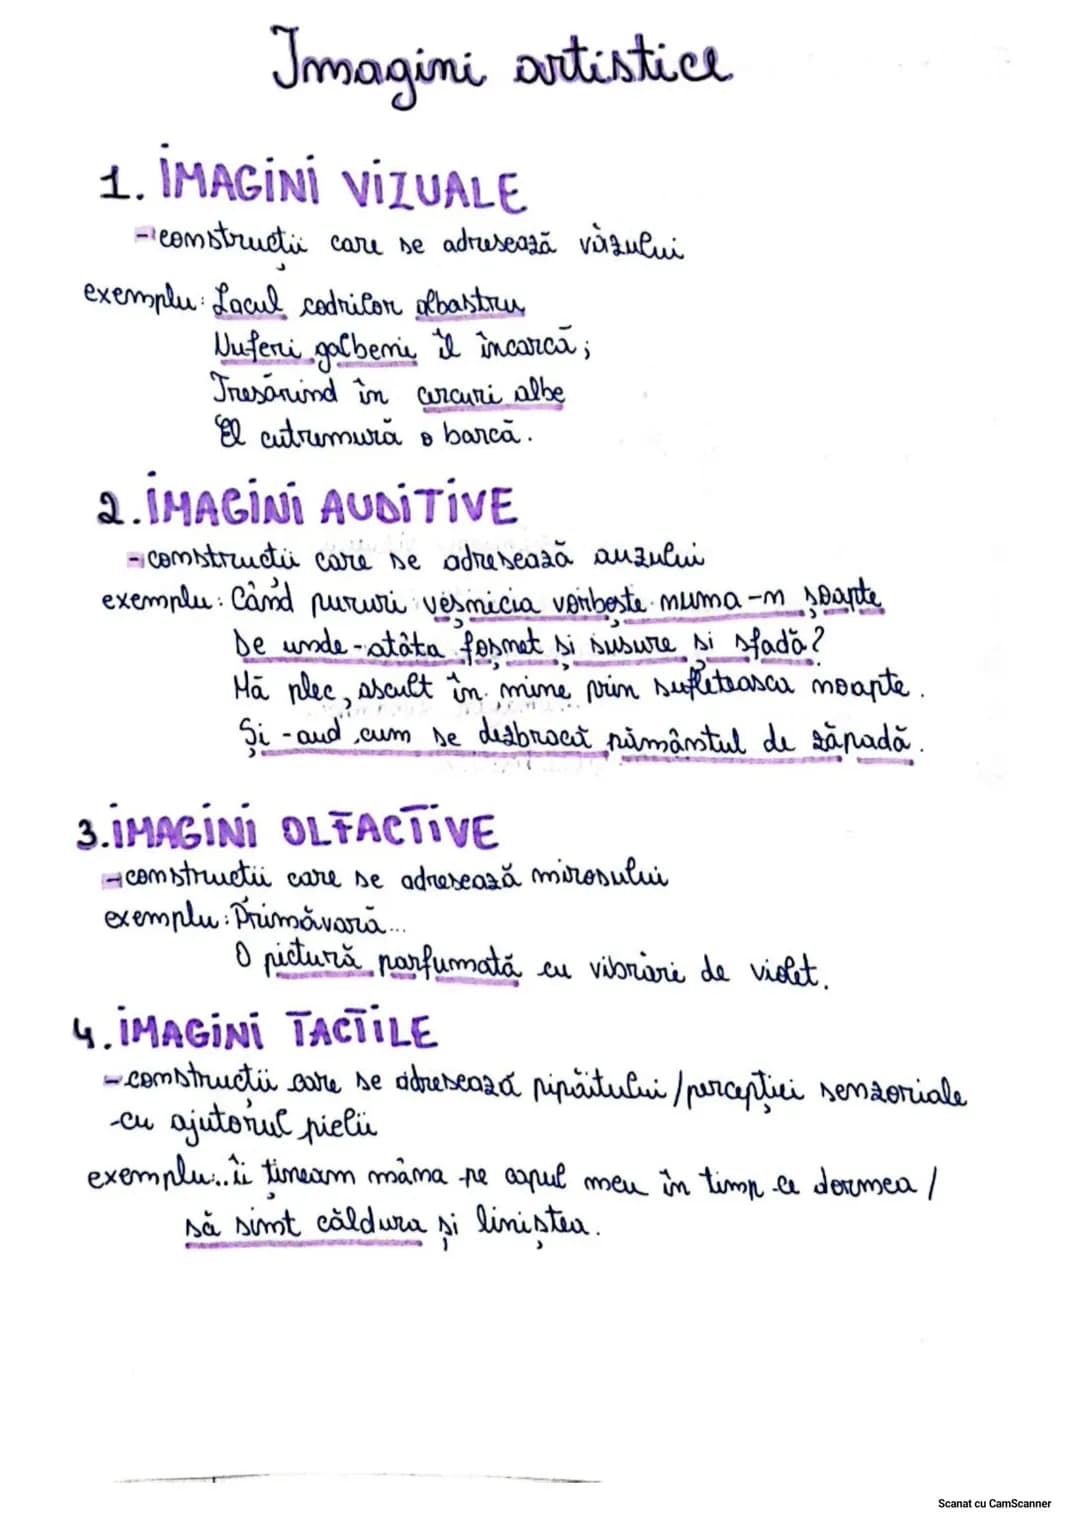 Imagini artistice
1. IMAGINI VIZUALE
- construcții care se adresează văzului
exemplu: Lacul codrilor albastru
Nuferi galbeni îl încarcă;
Tresărind în cercuri albe
El cutremură o barcă.
2. IMAGINI AUDITIVE
- construcții care se adresează auzului
exemplu: Când pururi veșnicia vorbește numa-n șoapte
De unde-atâta foșnet și susure și sfadă?
Mă plec, ascult în mine prin sufleteasca noapte.
Și-aud cum se dezbracă pământul de zăpadă.
3. IMAGINI OLFACTIVE
- construcții care se adresează mirosului
exemplu: Primăvară...
O pictură parfumată cu vibrări de violet.
4. IMAGINI TACTILE
- construcții care se adresează pipăitului/percepției senzoriale
- cu ajutorul pielii
exemplu:..îi țineam mâna pe capul meu în timp ce dormea /
să simt căldura și liniștea.
Scanat cu CamScanner